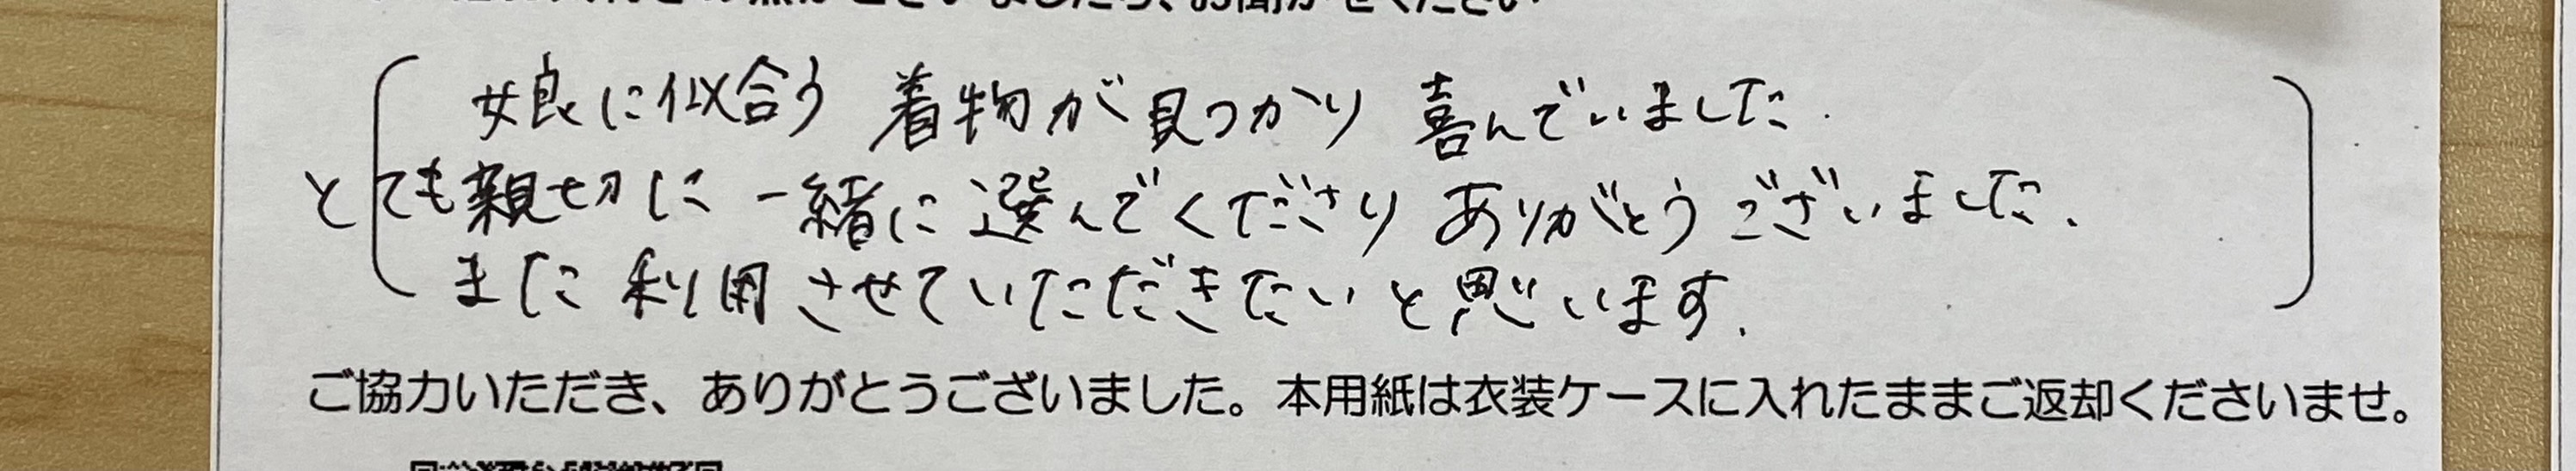 ございましたら、お聞かせください
娘に似合う 着物が見つかり 喜んでいました.
とても親切に 一緒に選んでくださり ありがとうございました.
また 利用させていただきたいと思います.
ご協力いただき、ありがとうございました。本用紙は衣装ケースに入れたままご返却くださいませ。